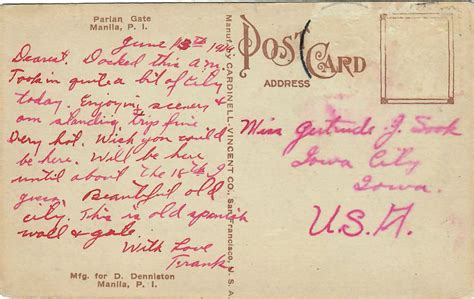 Parian Gate
Manila, P. I.
June 13th
Dearest. Docked this a.m.
Took in quite a bit of city
today. Enjoying scenery &
am standing trip fine
Very hot. Wish you could
be here. Will be here
until about the 18th I
guess. Beautiful old
city. This is old spanish
wall & gate.
With Love
Frank
Mfg. for D. Denniston
Manila, P. I.
Manuf. by CARDINELL-VINCENT CO., San Francisco, U. S. A.
POST CARD
Miss Gertrude J. Sook
Iowa City
Iowa.
U.S.A.